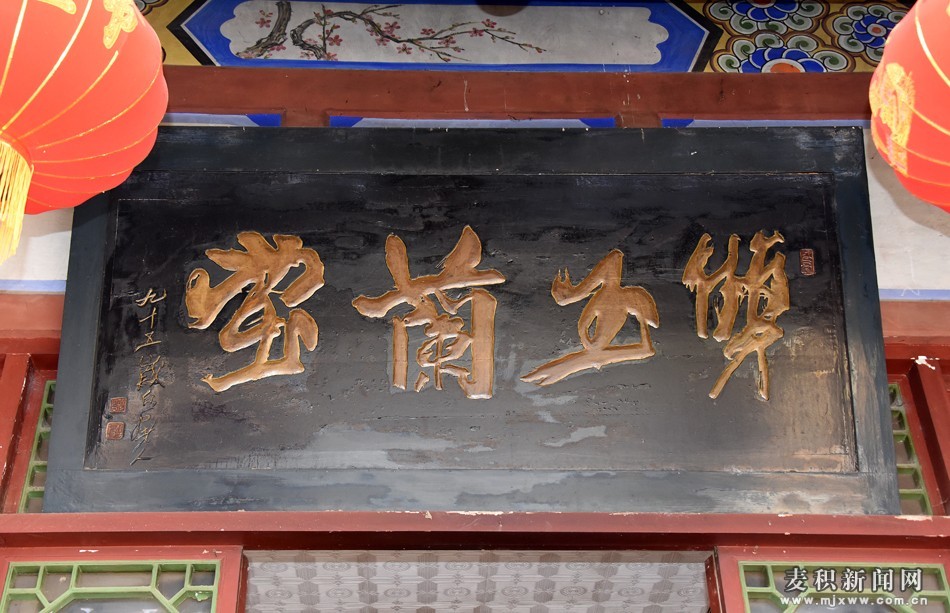 雙玉蘭堂
九十五歲白石老人
麦积新闻网
www.mjxww.com.cn